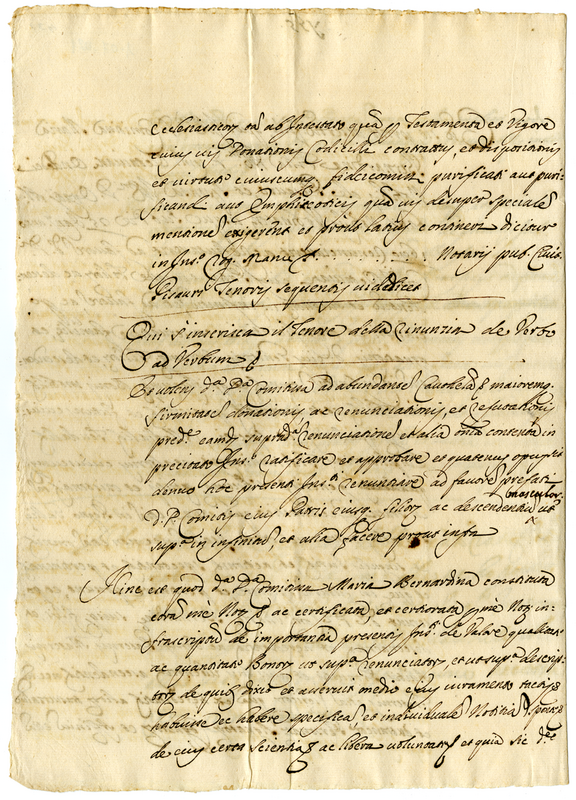 Ecclesiasticoꝝ tā ab Intestato quā ꝑ Testamenta et Vigore
cuius vis Donationis Codicilli contractus, et dispositionis
et virtute cuiuscumq fideicomiss purificati aut puri-
ficand aut Emphiteoticis quā vis desuper speciale
mentione exigerent et prout latius continer dicitur
in Insº Rog. Manu . . . . . . . . Notarij pub. Civis
Pisauri Tenoris sequentis videlicet
Qui s'inserisca il Tenore della Rinunzia de Verbo
ad Verbum
Et volens Dª Dª Comitissa ad abundante Cauthela maioremq
firmitate donationis ac renunciationis, et refutationis
predª eamd supradª renunciatione et alia omia contenta in
precitato Insº ratificare et approbare et quatenus opus sit
denuo hoc presenti Insº renuntiare ad favore prefati
masculoꝝ
D. P. Comitis eius Patris eiusq filioꝝ ac descendentiu ut
supª in infinitu, et alia facere prout infra
Hinc est quod Dª Dª Comitissa Maria Bernardina constituta
corā me Notº ac certificata, et certiorata per me Notº in-
frascriptu de importantia presentis Insº de Valore qualitate
ac quantitate Bonoꝝ ut supª renunciatoꝝ, et ut supª descrip-
toꝝ de quibus dixit et asseruit medio eius iuramento tactis
habuisse et habere specifica, et individuale Notitia sponte
de eius certa scientia ac libera voluntate et quia sic